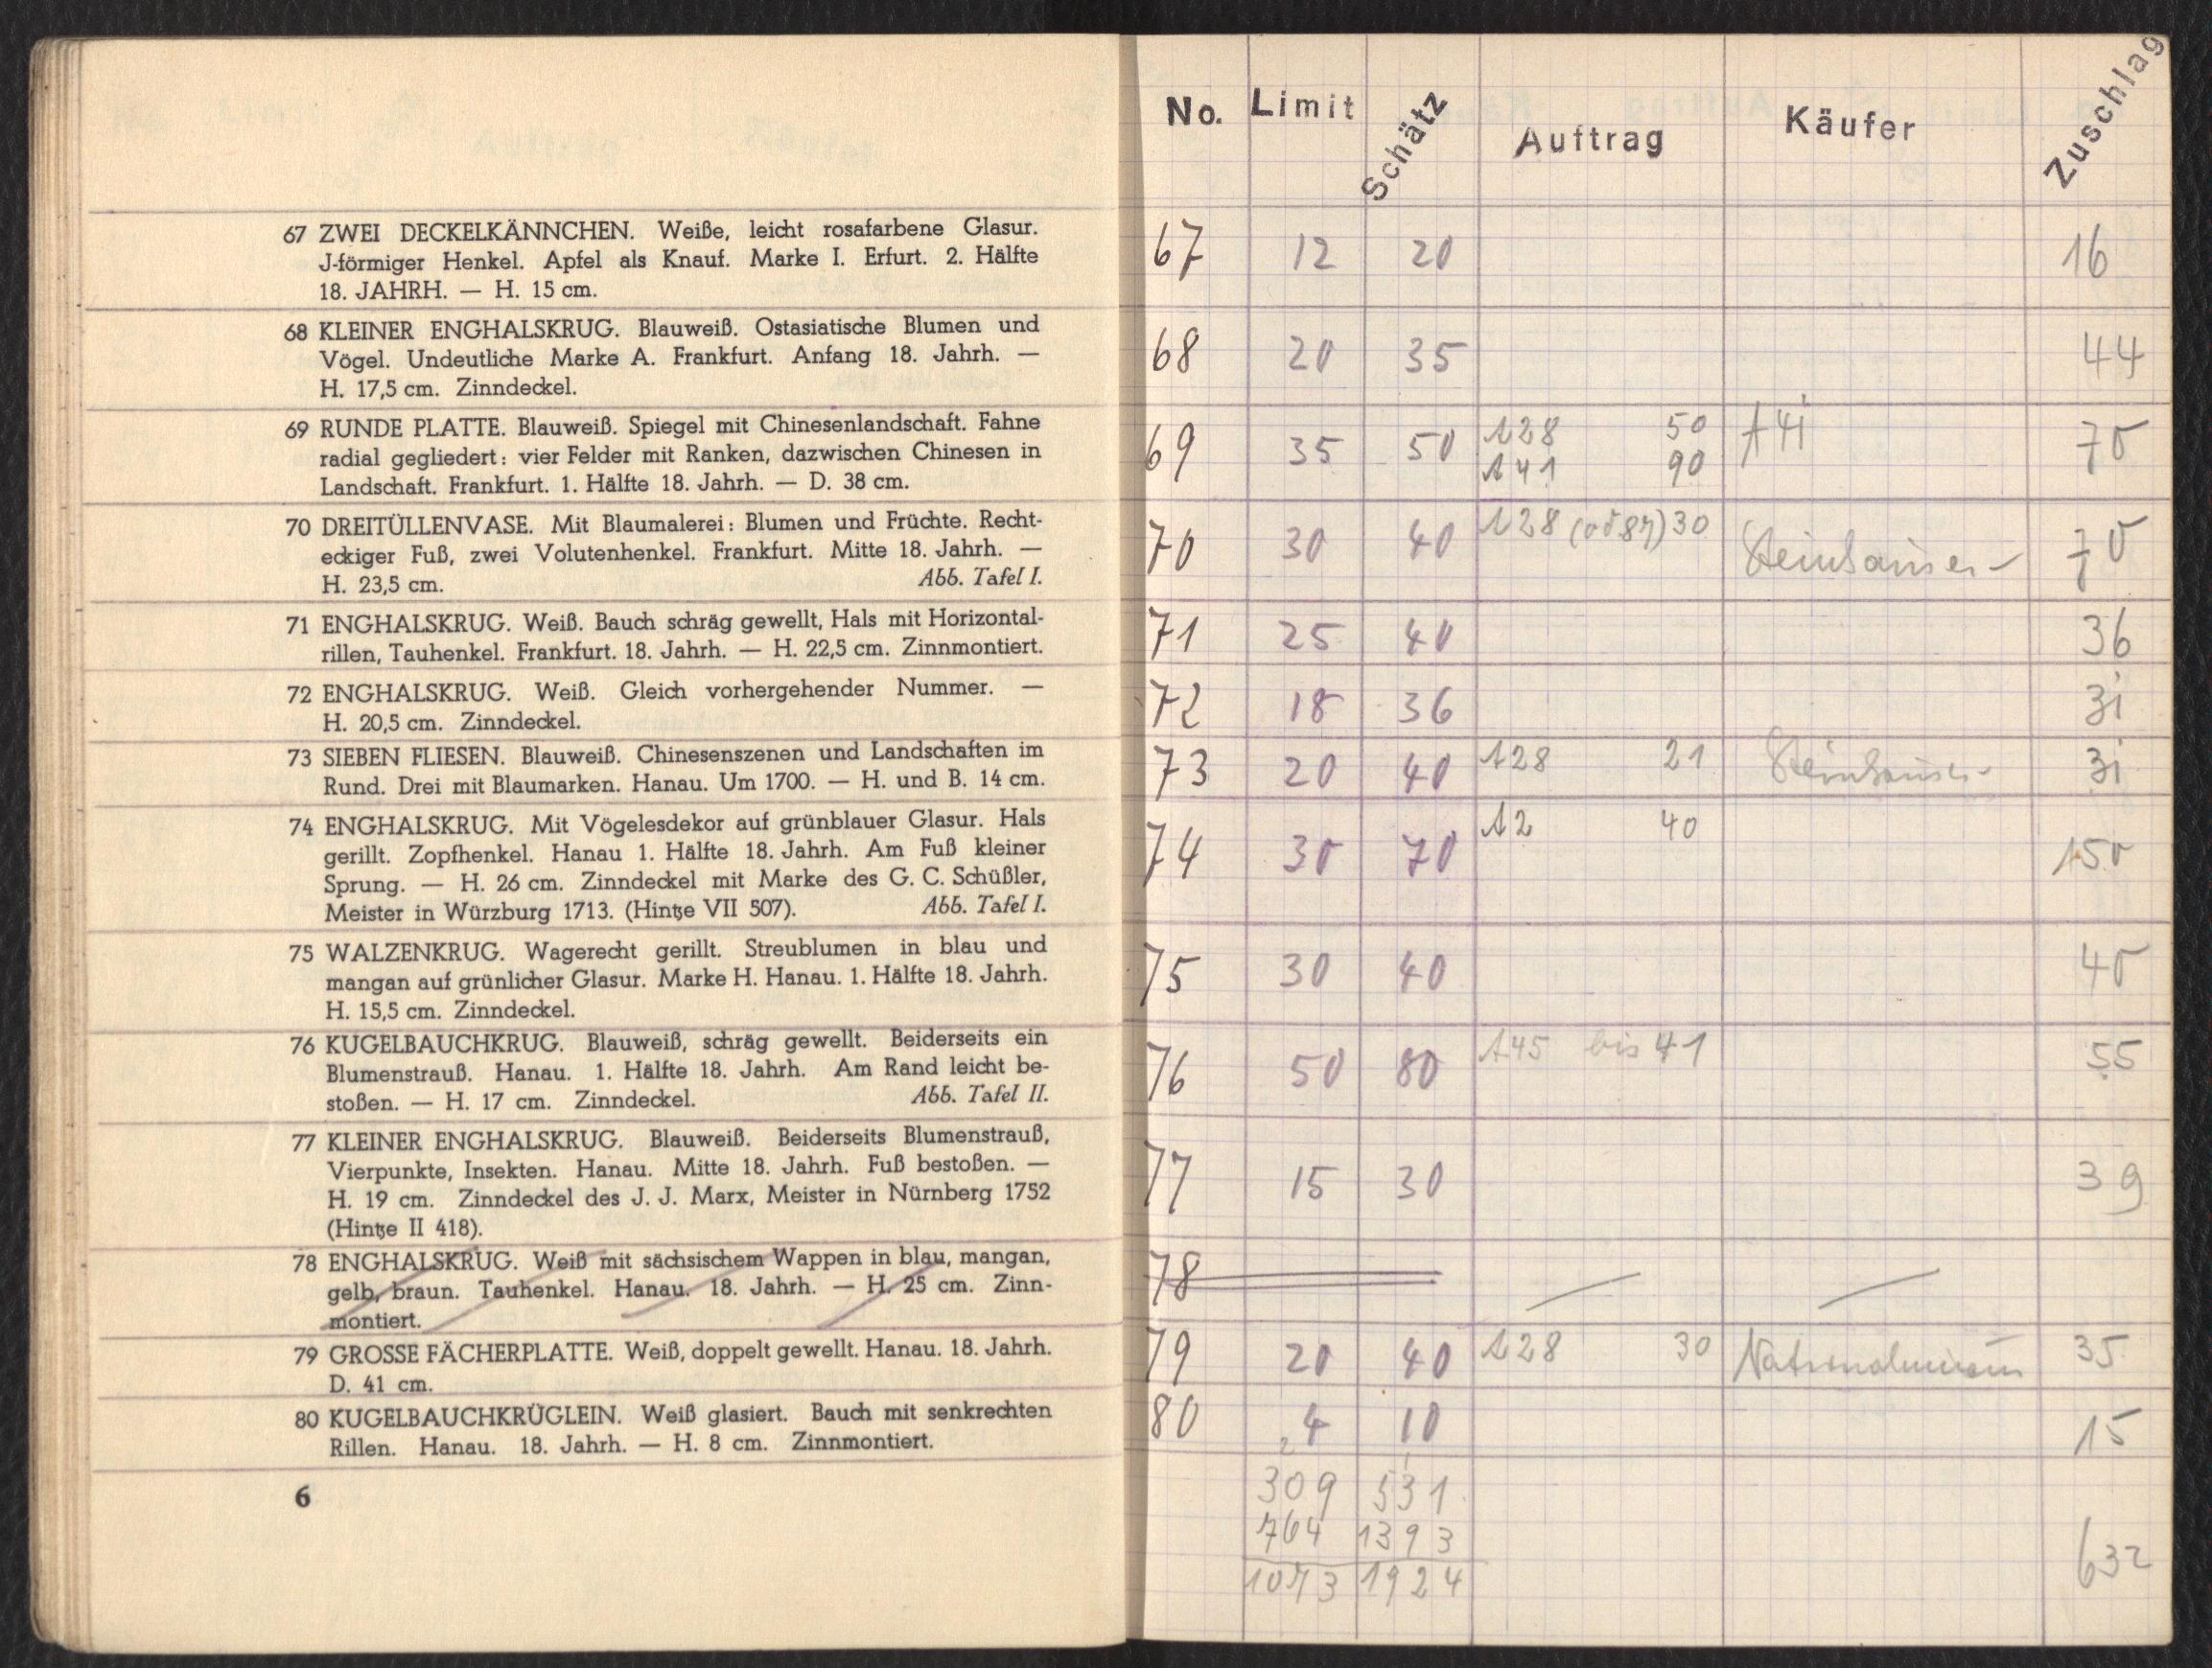 67 ZWEI DECKELKÄNNCHEN. Weiße, leicht rosafarbene Glasur.
J-förmiger Henkel. Apfel als Knauf. Marke I. Erfurt. 2. Hälfte
18. JAHRH. — H. 15 cm.
68 KLEINER ENGHALSKRUG. Blauweiß. Ostasiatische Blumen und
Vögel. Undeutliche Marke A. Frankfurt. Anfang 18. Jahrh. —
H. 17,5 cm. Zinndeckel.
69 RUNDE PLATTE. Blauweiß. Spiegel mit Chinesenlandschaft. Fahne
radial gegliedert: vier Felder mit Ranken, dazwischen Chinesen in
Landschaft. Frankfurt. 1. Hälfte 18. Jahrh. — D. 38 cm.
70 DREITÜLLENVASE. Mit Blaumalerei: Blumen und Früchte. Recht-
eckiger Fuß, zwei Volutenhenkel. Frankfurt. Mitte 18. Jahrh. —
H. 23,5 cm. Abb. Tafel I.
71 ENGHALSKRUG. Weiß. Bauch schräg gewellt, Hals mit Horizontal-
rillen, Tauhenkel. Frankfurt. 18. Jahrh. — H. 22,5 cm. Zinnmontiert.
72 ENGHALSKRUG. Weiß. Gleich vorhergehender Nummer. —
H. 20,5 cm. Zinndeckel.
73 SIEBEN FLIESEN. Blauweiß. Chinesenszenen und Landschaften im
Rund. Drei mit Blaumarken. Hanau. Um 1700. — H. und B. 14 cm.
74 ENGHALSKRUG. Mit Vögelesdekor auf grünblauer Glasur. Hals
gerillt. Zopfhenkel. Hanau 1. Hälfte 18. Jahrh. Am Fuß kleiner
Sprung. — H. 26 cm. Zinndeckel mit Marke des G. C. Schüßler,
Meister in Würzburg 1713. (Hintze VII 507). Abb. Tafel I.
75 WALZENKRUG. Wagerecht gerillt. Streublumen in blau und
mangan auf grünlicher Glasur. Marke H. Hanau. 1. Hälfte 18. Jahrh.
H. 15,5 cm. Zinndeckel.
76 KUGELBAUCHKRUG. Blauweiß, schräg gewellt. Beiderseits ein
Blumenstrauß. Hanau. 1. Hälfte 18. Jahrh. Am Rand leicht be-
stoßen. — H. 17 cm. Zinndeckel. Abb. Tafel II.
77 KLEINER ENGHALSKRUG. Blauweiß. Beiderseits Blumenstrauß,
Vierpunkte, Insekten. Hanau. Mitte 18. Jahrh. Fuß bestoßen. —
H. 19 cm. Zinndeckel des J. J. Marx, Meister in Nürnberg 1752
(Hintze II 418).
78 ENGHALSKRUG. Weiß mit sächsischem Wappen in blau, mangan,
gelb, braun. Tauhenkel. Hanau. 18. Jahrh. — H. 25 cm. Zinn-
montiert.
79 GROSSE FÄCHERPLATTE. Weiß, doppelt gewellt. Hanau. 18. Jahrh.
D. 41 cm.
80 KUGELBAUCHKRÜGLEIN. Weiß glasiert. Bauch mit senkrechten
Rillen. Hanau. 18. Jahrh. — H. 8 cm. Zinnmontiert.
6
No. Limit Schätz Auftrag Käufer Zuschlag
67 12 20 16
68 20 35 44
69 35 50 A28 50 A 41 70
A41 90
70 30 40 A28 30 Steinhauser 70
71 25 40 36
72 18 36 31
73 20 40 A28 21 Steinhauser 31
74 30 70 A2 40 150
75 30 40 40
76 50 80 A45 bis 41 55
77 15 30 39
78
79 20 40 A28 30 Nationalmuseum 35
80 4 10 15
309 531
764 1393
1073 1924 632